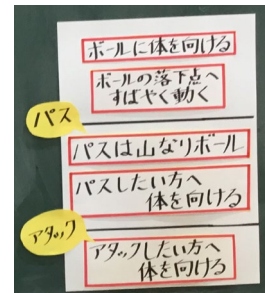 ボールに体を向ける
ボールの落下点へ
すばやく動く
パス
パスは山なりボール
パスしたい方へ
体を向ける
アタック
アタックしたい方へ
体を向ける